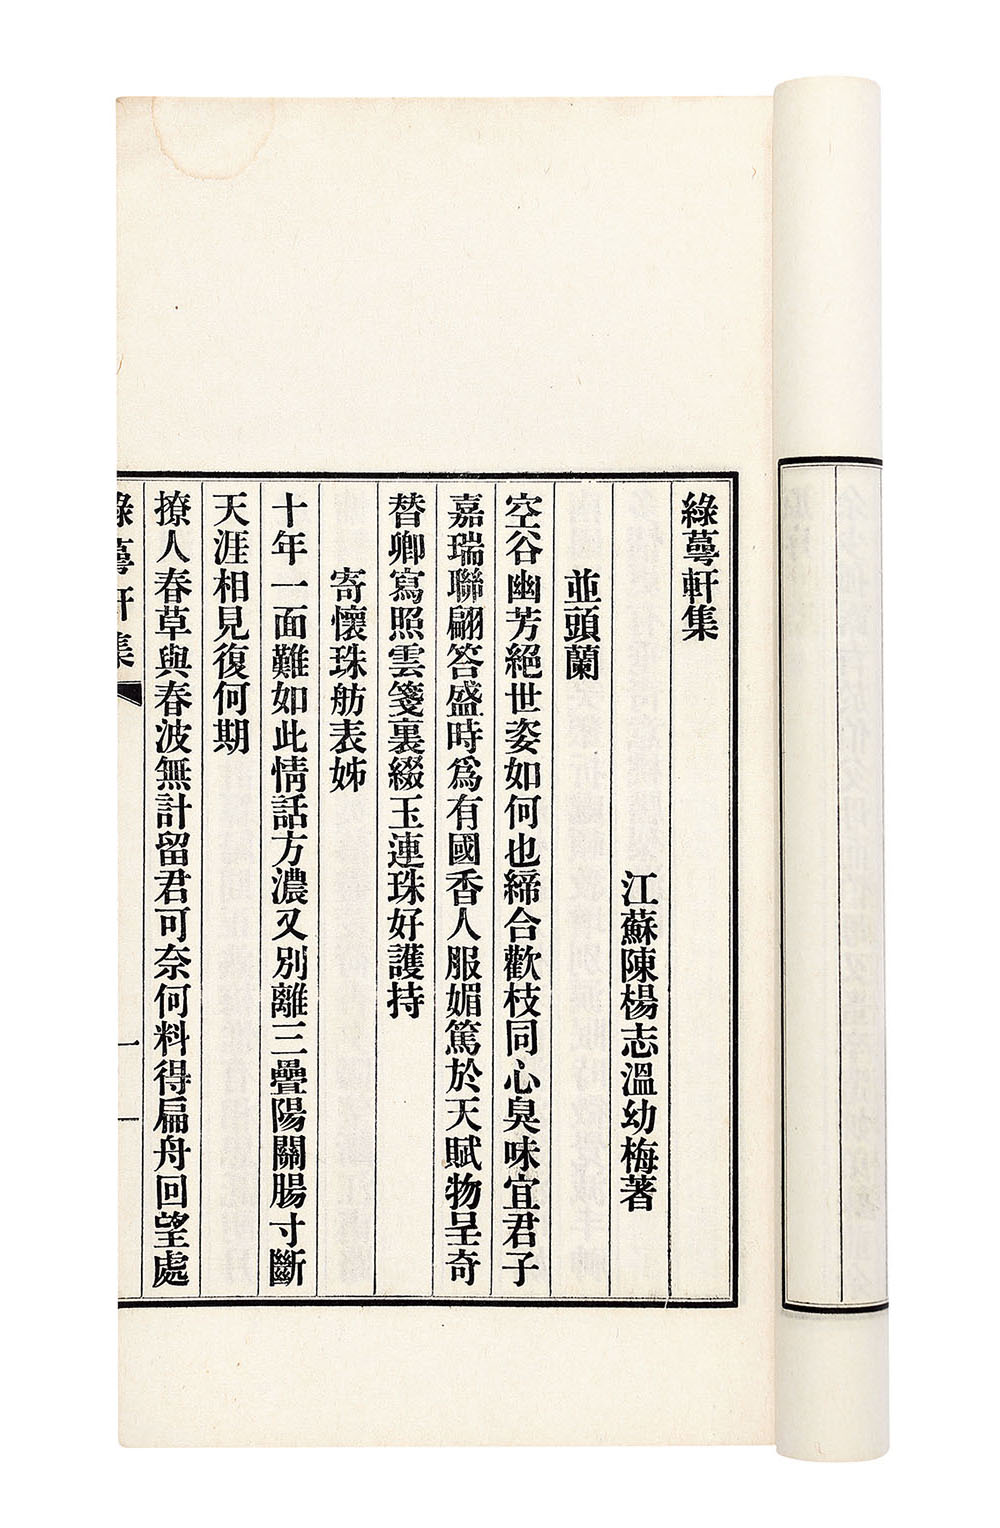 綠蕚軒集
江蘇陳楊志溫幼梅著
並頭蘭
空谷幽芳絕世姿如何也締合歡枝同心臭味宜君子
嘉瑞聯翩答盛時為有國香人服媚篤於天賦物呈奇
替卿寫照雲箋裏綴玉連珠好護持
寄懷珠舫表姊
十年一面難如此情話方濃又別離三疊陽關腸寸斷
天涯相見復何期
撩人春草與春波無計留君可奈何料得扁舟回望處
綠蕚軒集
一